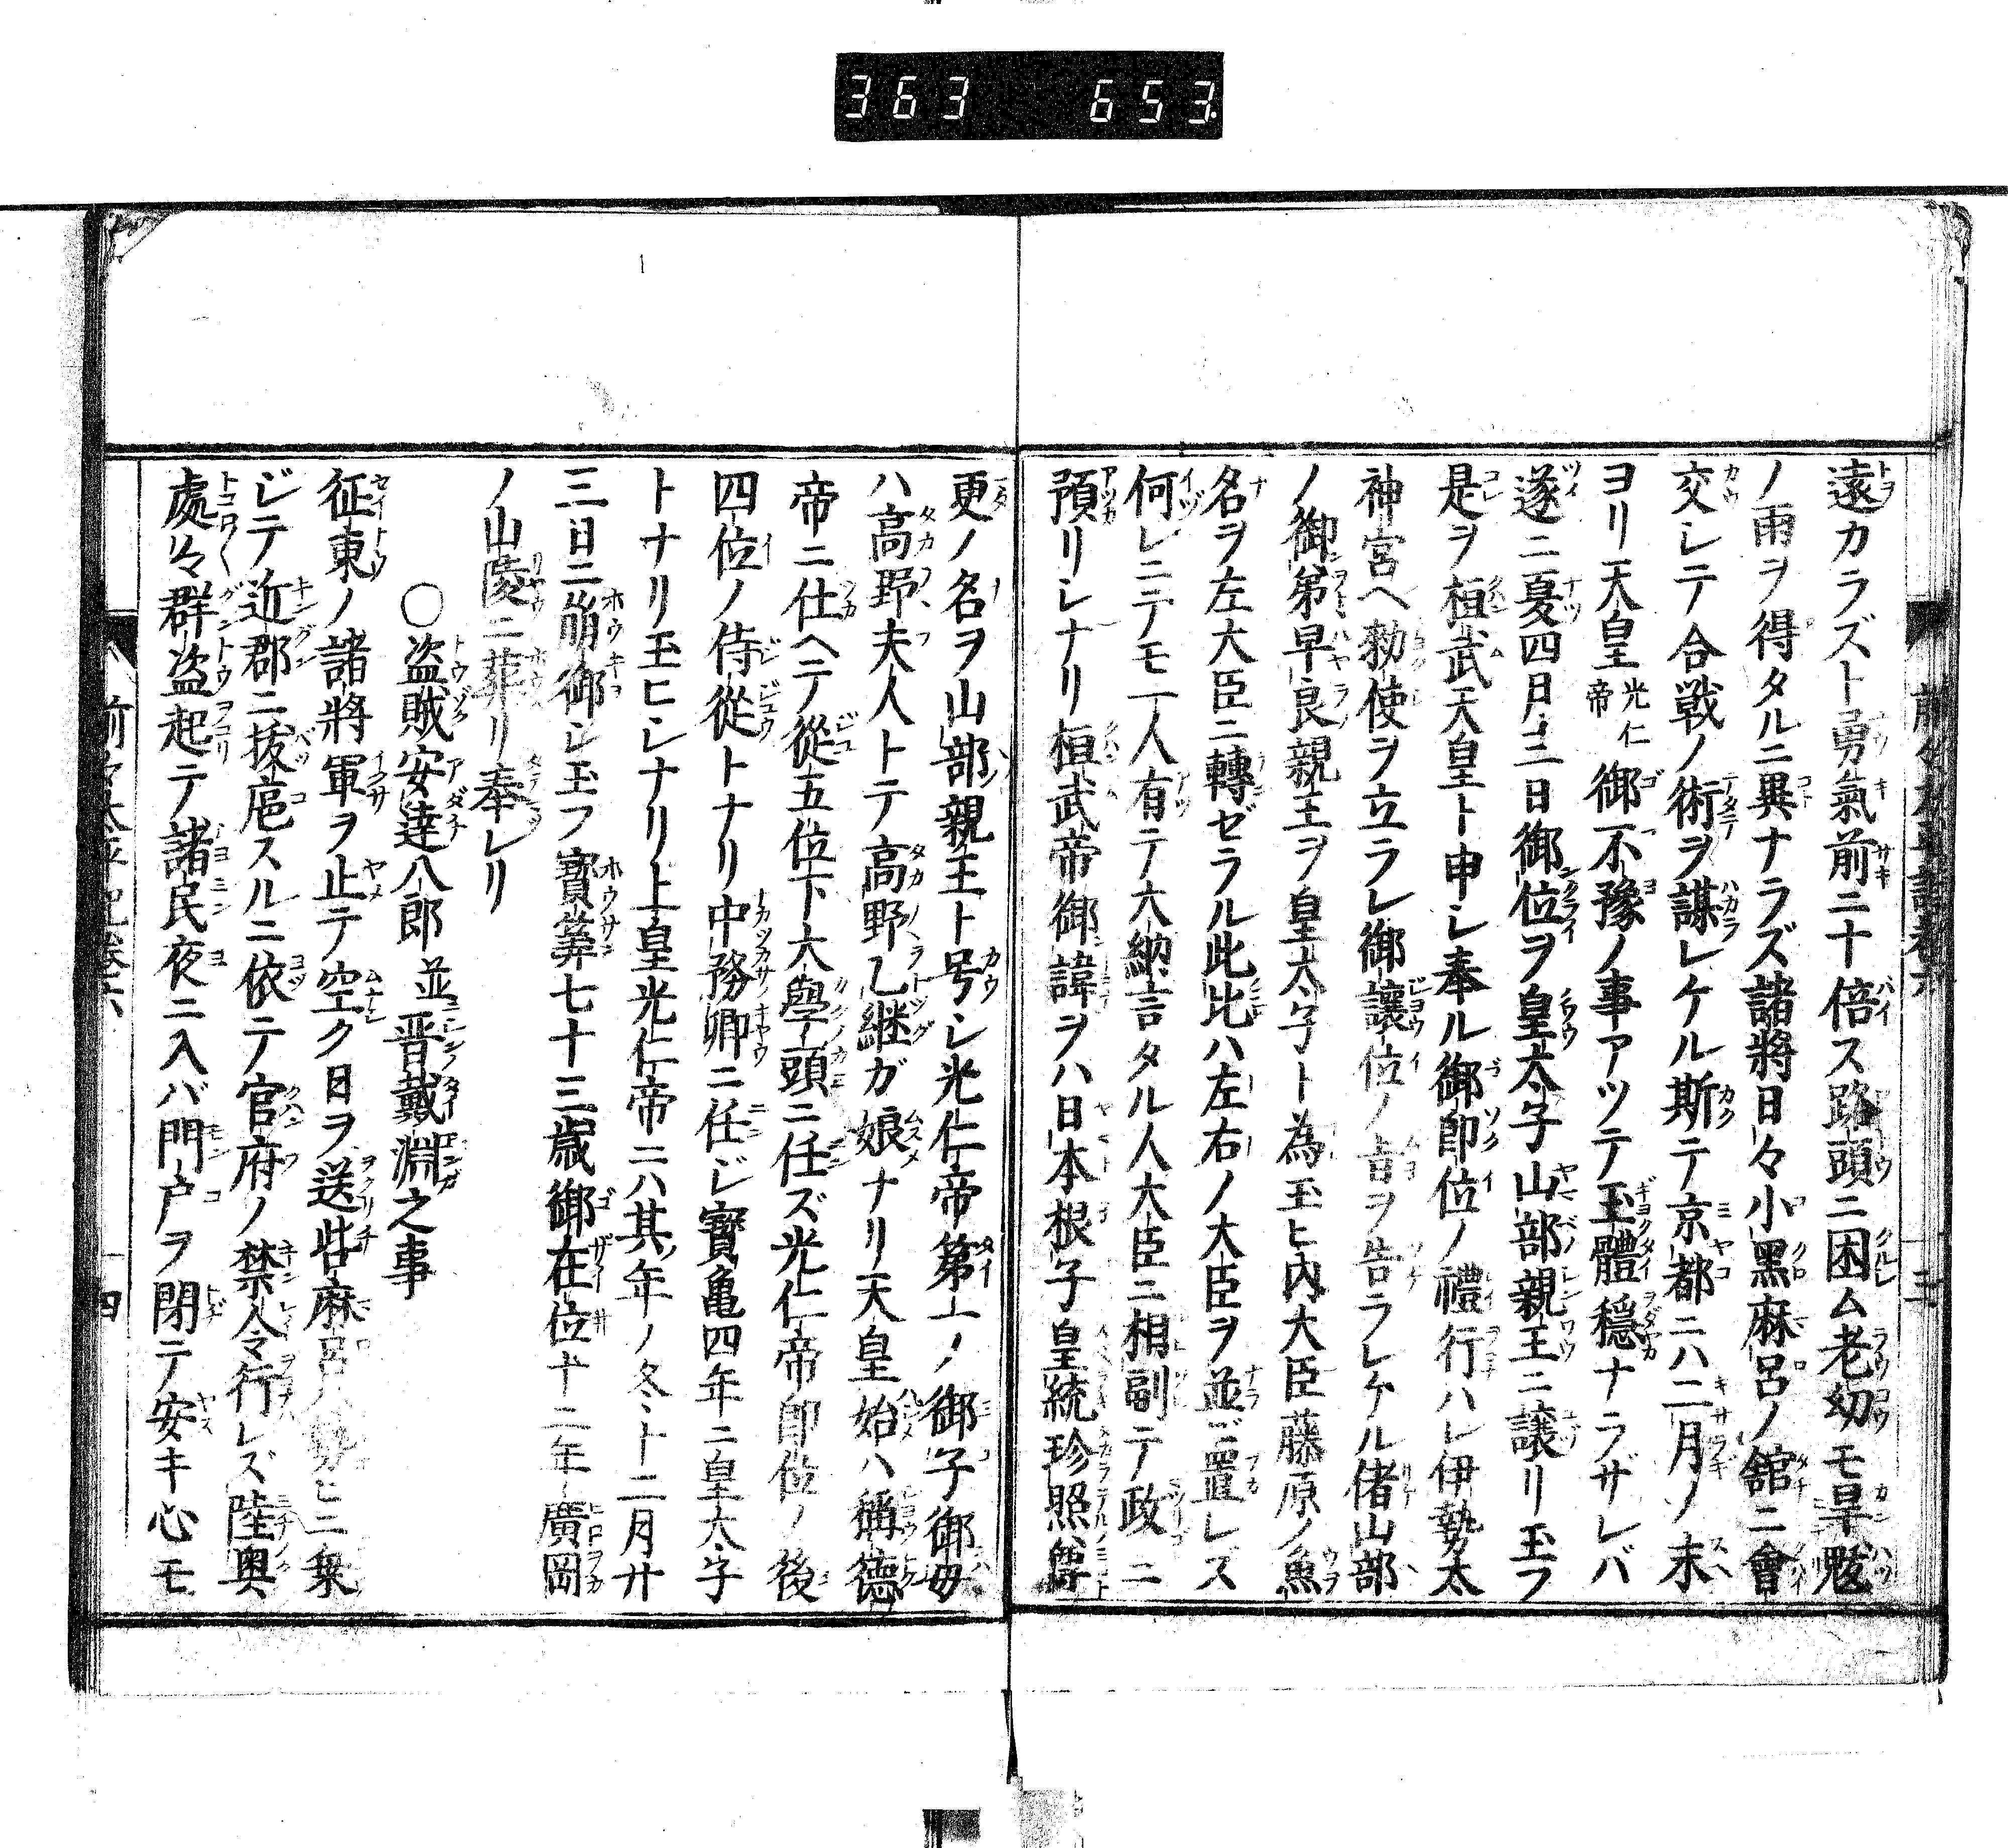 363 653
遠カラズト勇氣前ニ十倍ス路頭ニ困ム老幼モ旱魃
ノ雨ヲ得タルニ異ナラズ諸將日々小黑麻呂ノ舘ニ會
交シテ合戰ノ術ヲ謀レケル斯テ京都ニハ二月ノ末
ヨリ天皇光仁帝御不豫ノ事アツテ玉體穩ナラザレバ
遂ニ夏四月三日御位ヲ皇太子山部親王ニ譲リ玉フ
是ヲ桓武天皇ト申シ奉ル御即位ノ禮行ハレ伊勢太
神宮ヘ勅使ヲ立ラレ御讓位ノ旨ヲ告ラレケル偖山部
ノ御弟早良親王ヲ皇太子ト為玉ヒ内大臣藤原ノ魚
名ヲ左大臣ニ轉ゼラル此比ハ左右ノ大臣ヲ並ベ置レズ
何レニテモ一人有テ大納言タル人大臣ニ相副テ政ニ
預リシナリ桓武帝御諱ヲハ日本根子皇統珍照尊
更ノ名ヲ山部親王ト号シ光仁帝第一ノ御子御母
ハ高野夫人トテ高野乙継ガ娘ナリ天皇始ハ稱德
帝ニ仕ヘテ從五位下大學頭ニ任ズ光仁帝即位ノ後
四位ノ侍從トナリ中務卿ニ任ジ寳亀四年ニ皇太子
トナリ玉ヒシナリ上皇光仁帝ニハ其年ノ冬十二月廿
三日ニ崩御シ玉フ寳算七十三歳御在位十二年廣岡
ノ山陵ニ葬リ奉レリ
○盗賊安達八郎並晋戴淵之事
征東ノ諸將軍ヲ止テ空ク日ヲ送呰麻呂八勢ヒニ乗
ジテ近郡ニ抜扈スルニ依テ官府ノ禁令行レズ陸奥
處々群盗起テ諸民夜ニ入バ門戸ヲ閉テ安キ心モ
前々太平記卷六
四